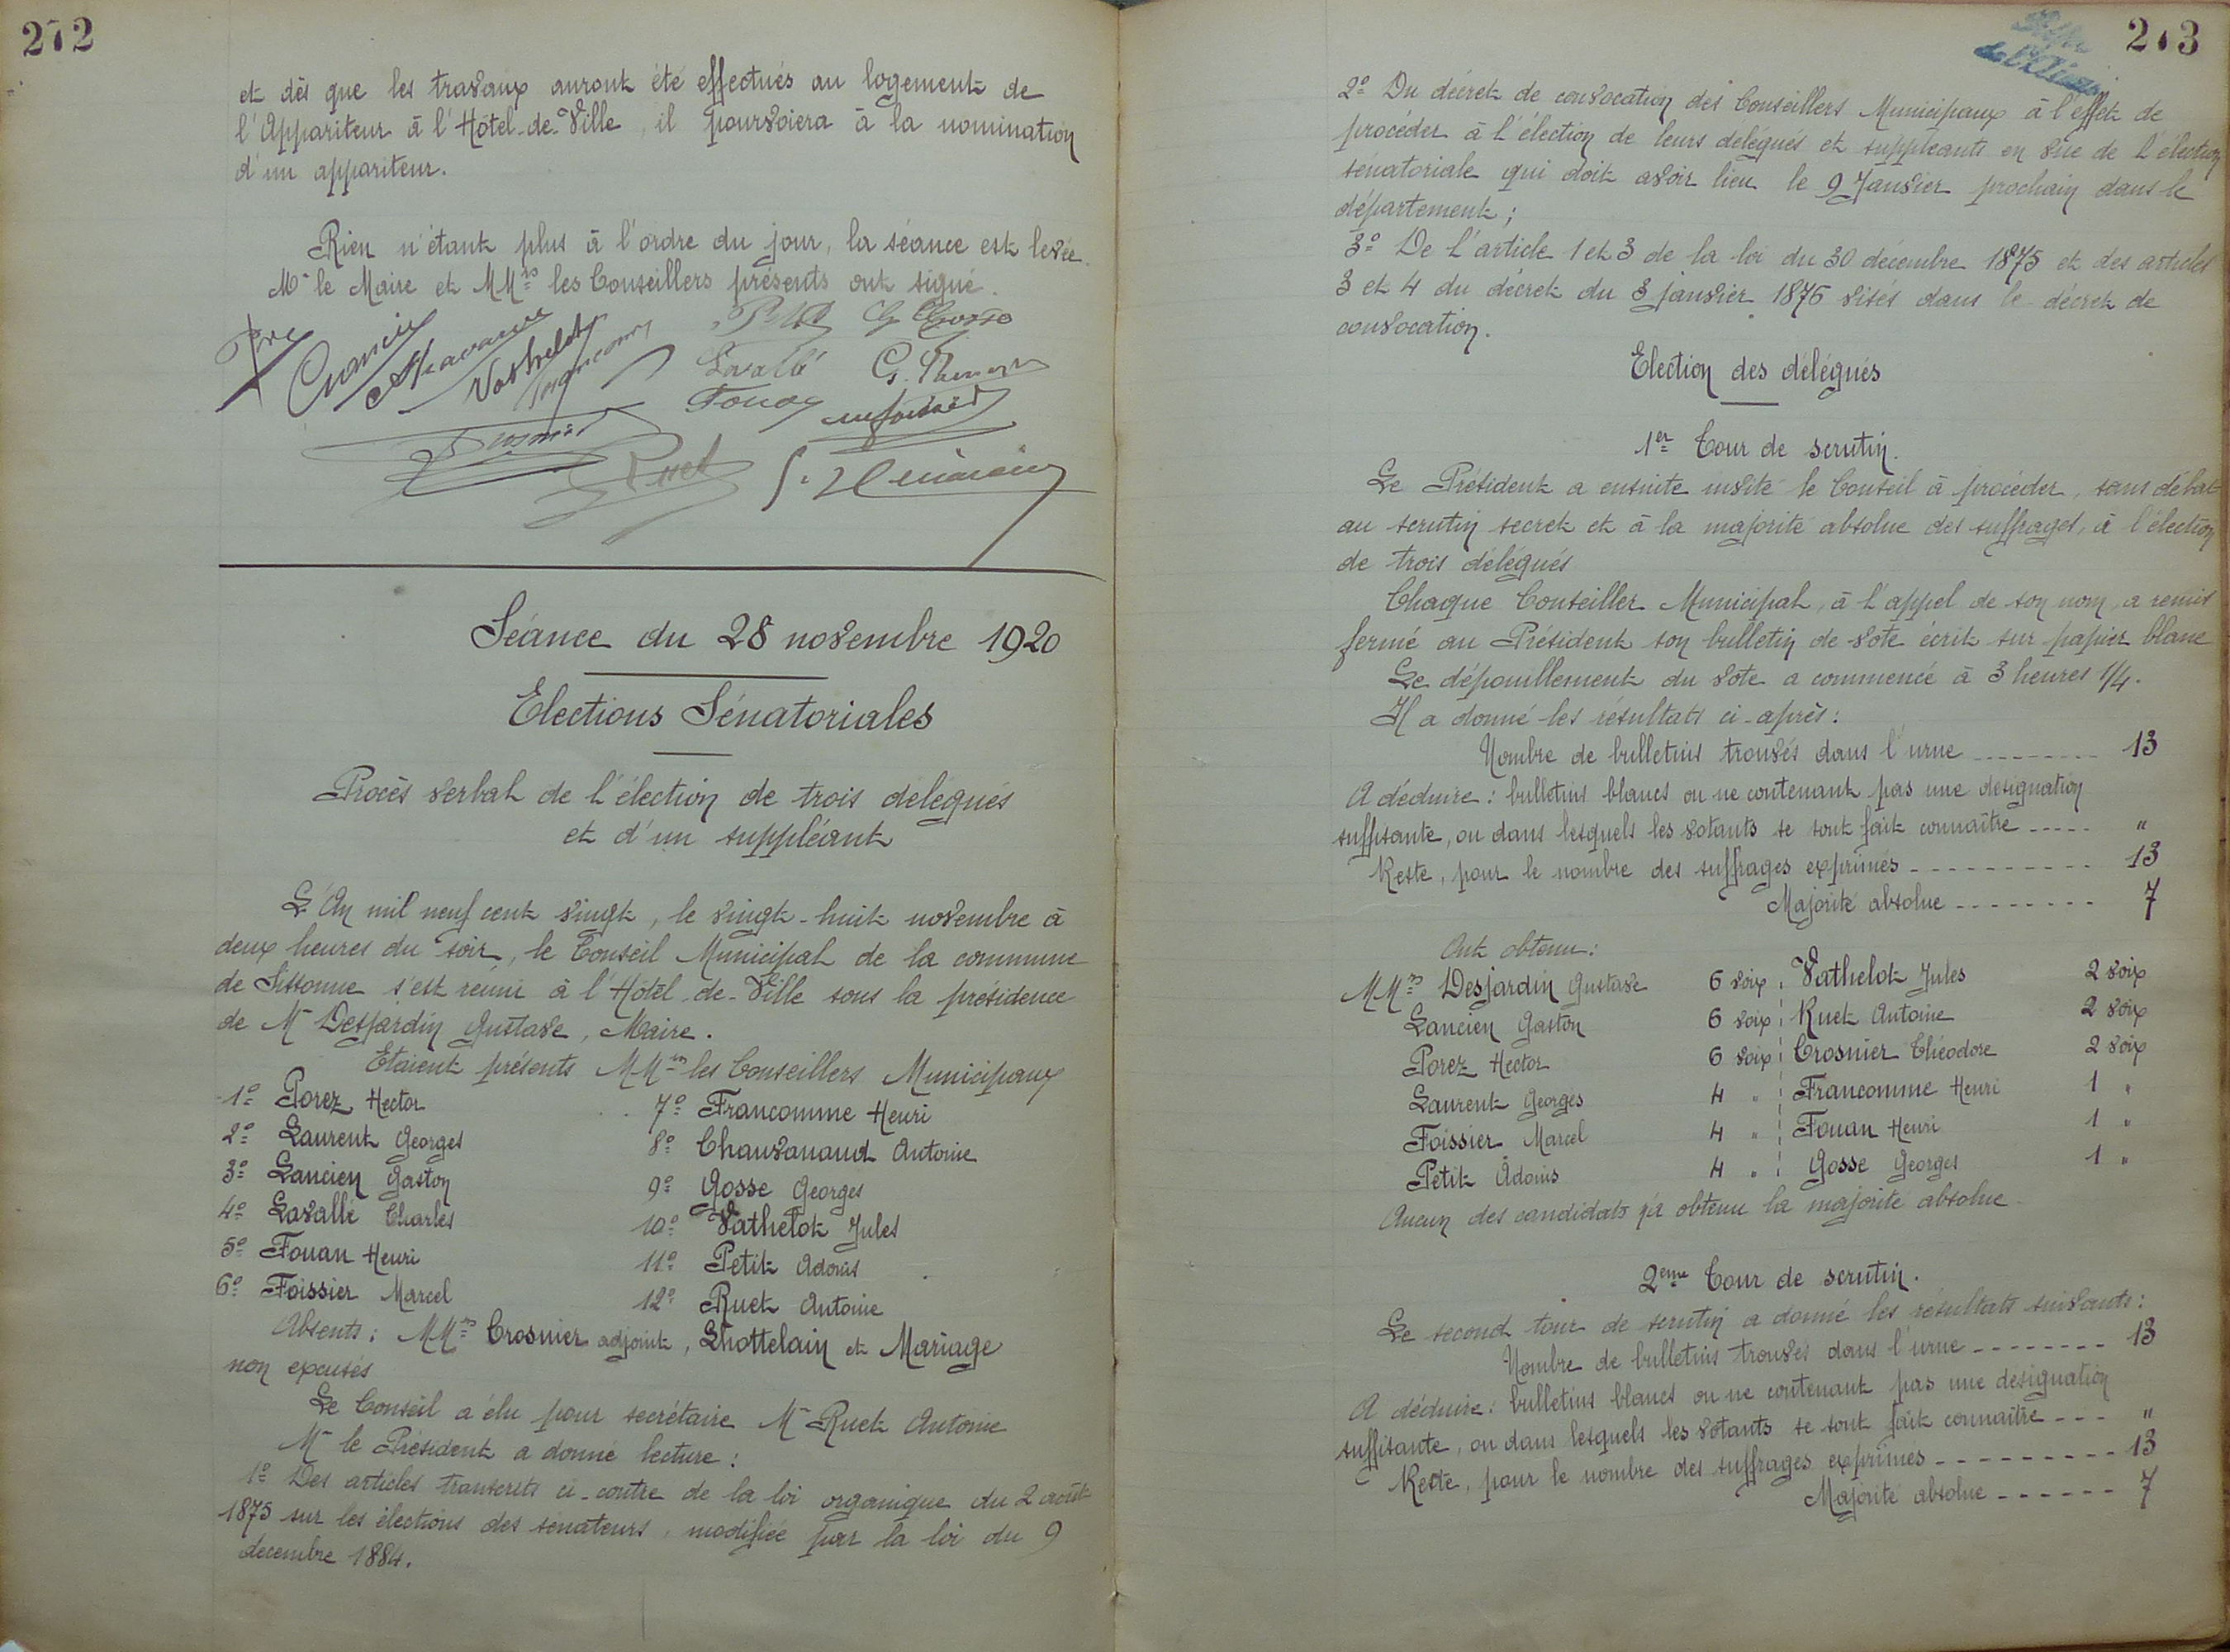 272
et dès que les travaux auront été effectués au logement de
l'Appariteur à l'Hôtel-de-Ville, il pourvoiera à la nomination
d'un appariteur.
Rien n'étant plus à l'ordre du jour, la séance est levée.
Mr le Maire et MMrs les Conseillers présents ont signé.
Vathelot
Francomme
Petit G Gosse
Lavallé
Fouan
Ruet
Séance du 28 novembre 1920
Elections Sénatoriales
Procès verbal de l'élection de trois délégués
et d'un suppléant
L'An mil neuf cent vingt, le vingt-huit novembre à
deux heures du soir, le Conseil Municipal de la commune
de Sissonne s'est réuni à l'Hôtel-de-Ville sous la présidence
de Mr Desjardin Gustave, Maire.
Etaient présents MMrs les Conseillers Municipaux
1º Porez Hector
2º Laurent Georges
3º Lancien Gaston
4º Lavallé Charles
5º Fouan Henri
6º Foissier Marcel
7º Francomme Henri
8º Chauvanaud Antoine
9º Gosse Georges
10º Vathelot Jules
11º Petit Adonis
12º Ruet Antoine
Absents: MMrs Crosnier adjoint, Lhottelain et Mariage
non excusés
Le Conseil a élu pour secrétaire Mr Ruet Antoine
Mr le Président a donné lecture:
1º Des articles transcrits ci-contre de la loi organique du 2 août
1875 sur les élections des sénateurs, modifiée par la loi du 9
décembre 1884.
de l'Aisne
273
2º Du décret de convocation des Conseillers Municipaux à l'effet de
procéder à l'élection de leurs délégués et suppléants en vue de l'élection
sénatoriale qui doit avoir lieu le 9 Janvier prochain dans le
département;
3º De l'article 1 et 3 de la loi du 30 décembre 1875 et des articles
3 et 4 du décret du 3 janvier 1876 visés dans le décret de
convocation.
Election des délégués
1er Tour de scrutin.
Le Président a ensuite invité le Conseil à procéder, sans débat
au scrutin secret et à la majorité absolue des suffrages, à l'élection
de trois délégués
Chaque Conseiller Municipal, à l'appel de son nom, a remis
fermé au Président son bulletin de vote écrit sur papier blanc
Le dépouillement du vote a commencé à 3 heures 1/4.
Il a donné les résultats ci-après:
Nombre de bulletins trouvés dans l'urne --------- 13
A déduire: bulletins blancs ou ne contenant pas une désignation
suffisante, ou dans lesquels les votants se sont fait connaître ----- "
Reste, pour le nombre des suffrages exprimés ---------- 13
Majorité absolue -------- 7
Ont obtenu:
MMrs Desjardin Gustave 6 voix Vathelot Jules 2 voix
Lancien Gaston 6 voix Ruet Antoine 2 voix
Porez Hector 6 voix Crosnier Théodore 2 voix
Laurent Georges 4 " Francomme Henri 1 "
Foissier Marcel 4 " Fouan Henri 1 "
Petit Adonis 4 " Gosse Georges 1 "
Aucun des candidats n'a obtenu la majorité absolue
2ème Tour de scrutin.
Le second tour de scrutin a donné les résultats suivants:
Nombre de bulletins trouvés dans l'urne -------- 13
A déduire: bulletins blancs ou ne contenant pas une désignation
suffisante, ou dans lesquels les votants se sont fait connaître --- "
Reste, pour le nombre des suffrages exprimés --------- 13
Majorité absolue ------ 7